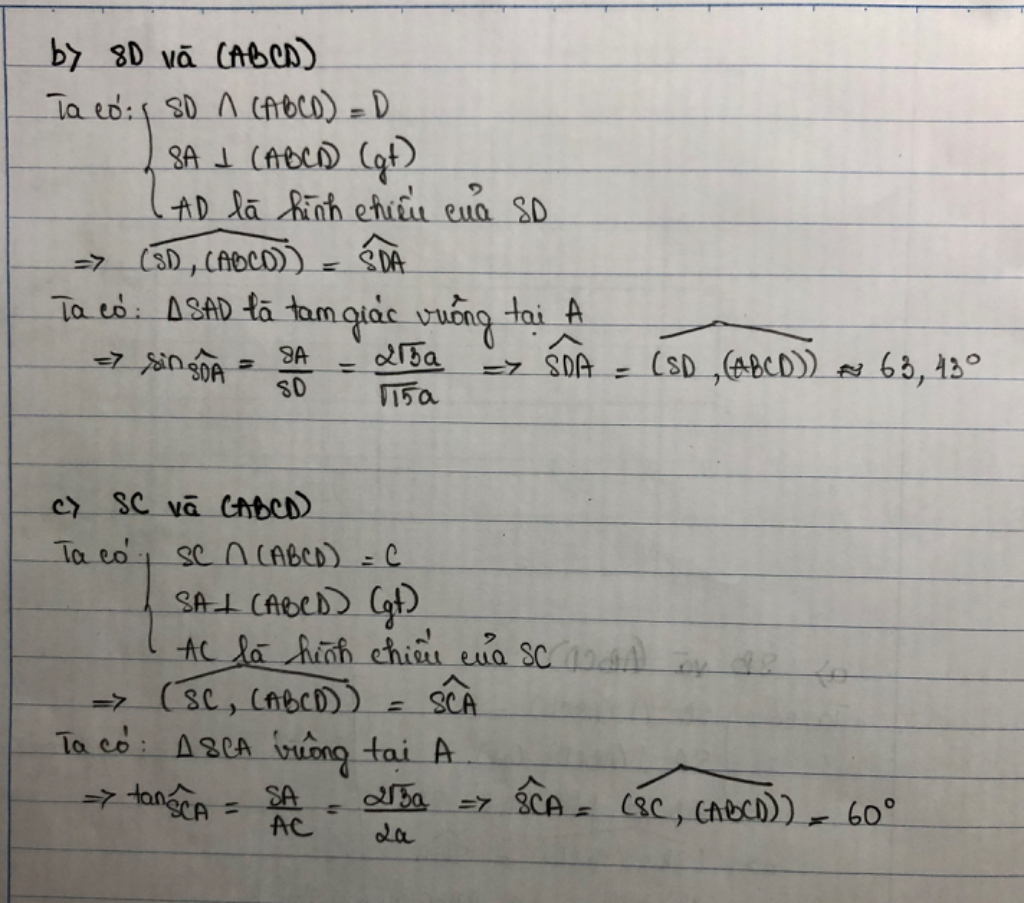 b) SD và (ABCD)
Ta có: { SD ∩ (ABCD) = D
SA ⊥ (ABCD) (gt)
AD là hình chiếu của SD
=> (SD, (ABCD))^ = SDA^
Ta có: ΔSAD là tam giác vuông tại A
=> sin SDA^ = SA/SD = 2√3a/√15a => SDA^ = (SD, (ABCD))^ ≈ 63,43°
c) SC và (ABCD)
Ta có { SC ∩ (ABCD) = C
SA ⊥ (ABCD) (gt)
AC là hình chiếu của SC
=> (SC, (ABCD))^ = SCA^
Ta có: ΔSCA vuông tại A
=> tan SCA^ = SA/AC = 2√3a/2a => SCA^ = (SC, (ABCD))^ = 60°